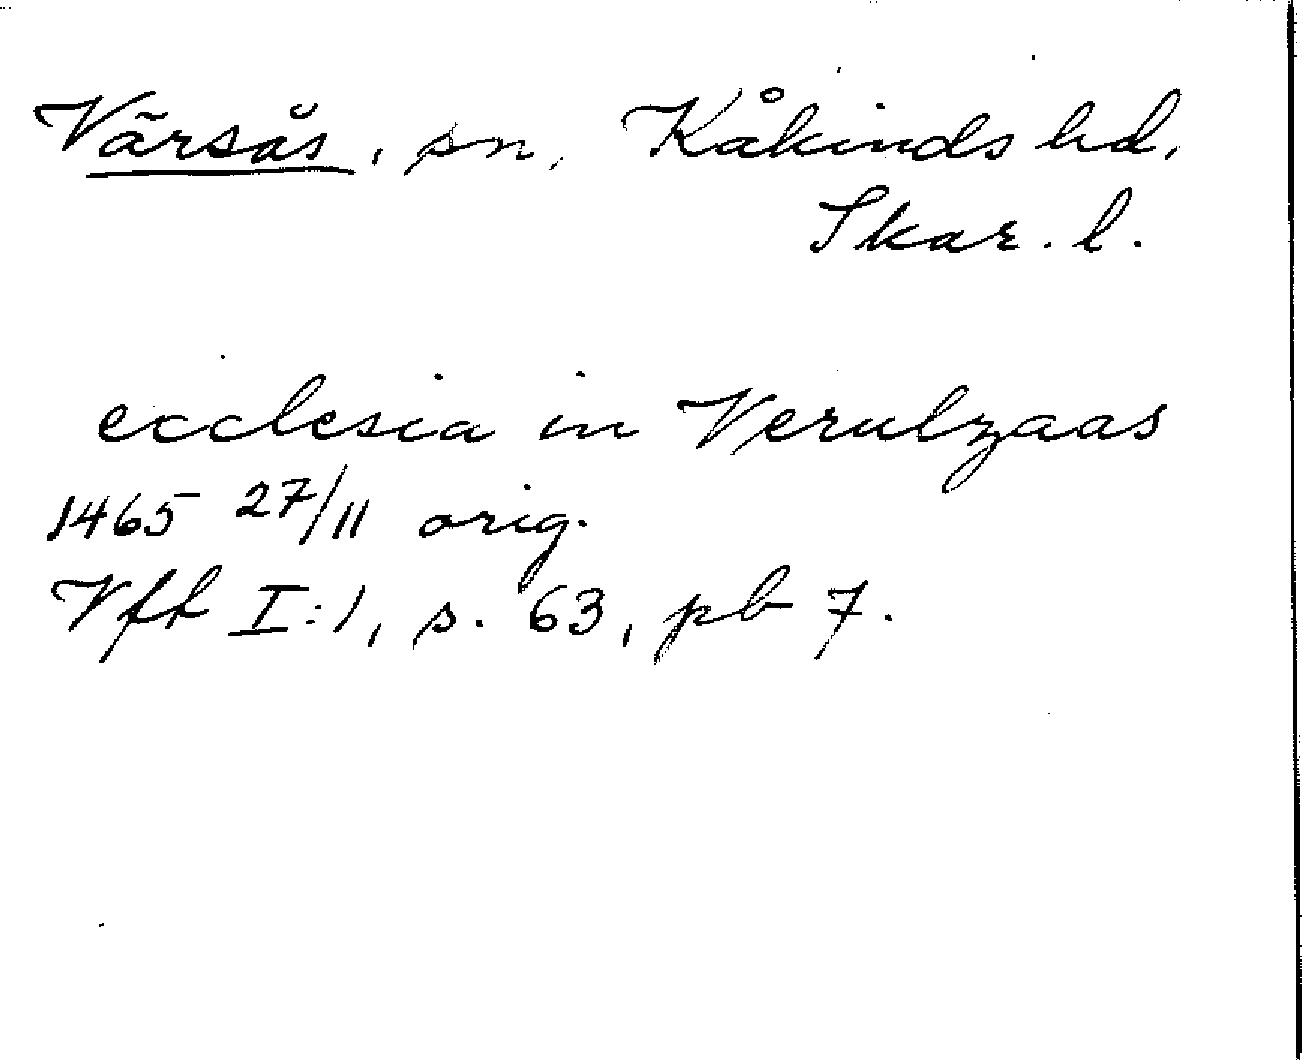 Värsås, sn, Kåkinds hd,
Skar. l.
ecclesia in Verulzaas
1465 27/11 orig.
Vft I:1, s. 63, pb 7.